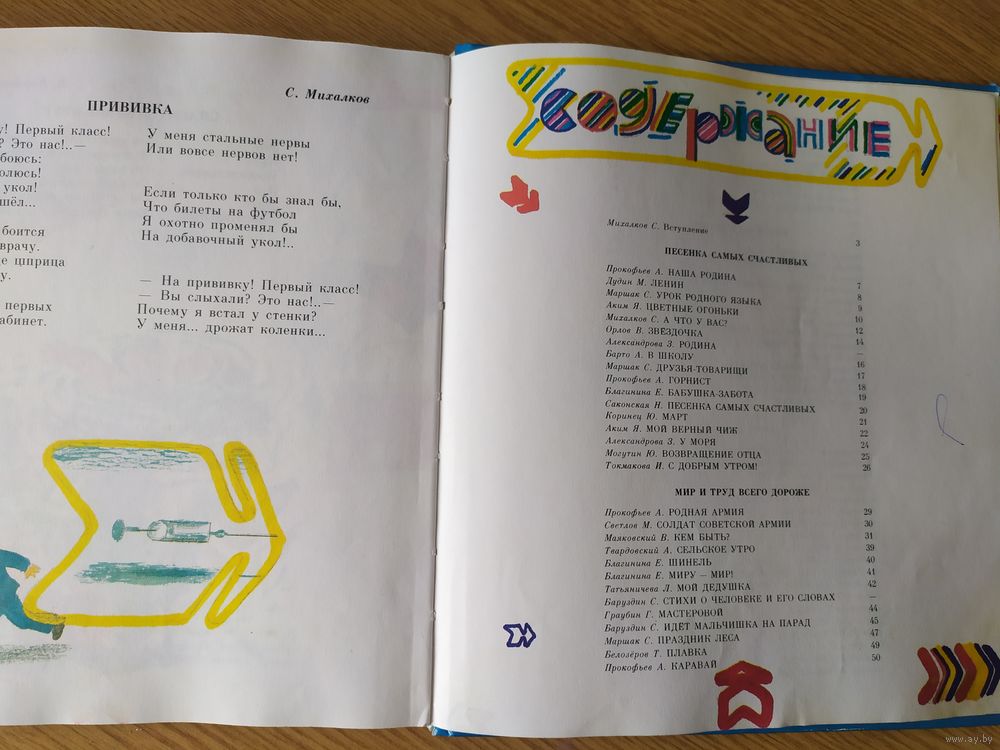 С. Михалков
ПРИВИВКА
! Первый класс!
? Это нас!..—
боюсь:
укол!
боится
врачу.
шприца
первых
У меня стальные нервы
Или вовсе нервов нет!
Если только кто бы знал бы,
Что билеты на футбол
Я охотно променял бы
На добавочный укол!..
— На прививку! Первый класс!
— Вы слыхали? Это нас!..—
Почему я встал у стенки?
У меня... дрожат коленки...
СОДЕРЖАНИЕ
Михалков С. Вступление 3
ПЕСЕНКА САМЫХ СЧАСТЛИВЫХ
Прокофьев А. НАША РОДИНА 7
Дудин М. ЛЕНИН 8
Маршак С. УРОК РОДНОГО ЯЗЫКА 9
Аким Я. ЦВЕТНЫЕ ОГОНЬКИ 10
Михалков С. А ЧТО У ВАС? 12
Орлов В. ЗВЁЗДОЧКА 14
Александрова З. РОДИНА —
Барто А. В ШКОЛУ 16
Маршак С. ДРУЗЬЯ-ТОВАРИЩИ 17
Прокофьев А. ГОРНИСТ 18
Благинина Е. БАБУШКА-ЗАБОТА 19
Саконская Н. ПЕСЕНКА САМЫХ СЧАСТЛИВЫХ 20
Коринец Ю. МАРТ 21
Аким Я. МОЙ ВЕРНЫЙ ЧИЖ 22
Александрова З. У МОРЯ 24
Могутин Ю. ВОЗВРАЩЕНИЕ ОТЦА 25
Токмакова И. С ДОБРЫМ УТРОМ! 26
МИР И ТРУД ВСЕГО ДОРОЖЕ
Прокофьев А. РОДНАЯ АРМИЯ 29
Светлов М. СОЛДАТ СОВЕТСКОЙ АРМИИ 30
Маяковский В. КЕМ БЫТЬ? 31
Твардовский А. СЕЛЬСКОЕ УТРО 39
Благинина Е. ШИНЕЛЬ 40
Благинина Е. МИРУ — МИР! 41
Татьяничева Л. МОЙ ДЕДУШКА 42
Баруздин С. СТИХИ О ЧЕЛОВЕКЕ И ЕГО СЛОВАХ —
Граубин Г. МАСТЕРОВОЙ 44
Баруздин С. ИДЁТ МАЛЬЧИШКА НА ПАРАД 45
Маршак С. ПРАЗДНИК ЛЕСА 47
Белозёров Т. ПЛАВКА 49
Прокофьев А. КАРАВАЙ 50
www.ay.by